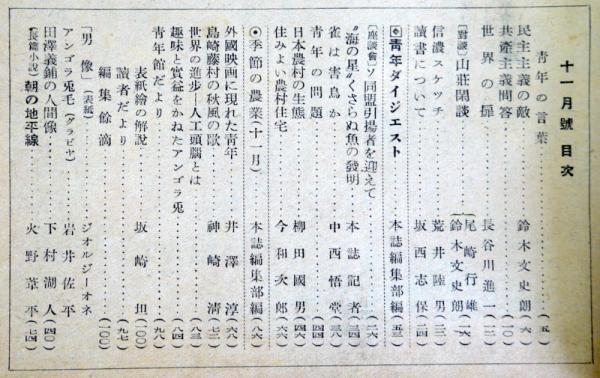 十一月號 目次
青年の言葉……(五)
民主主義の敵……鈴木文史朗(六)
共產主義問答……(一〇)
世界の扉……長谷川進一(一二)
〔對談〕山莊閑談……尾崎行雄 鈴木文史朗(一六)
信濃スケッチ……荒井陸男
讀書について……坂西志保(二四)
◉青年ダイジェスト……本誌編集部編(五三)
〔座談會〕ソ同盟引揚者を迎えて……(二六)
“海の星”くさらぬ魚の發明……本誌記者(三四)
雀は害鳥か……中西悟堂(三八)
青年の問題……(四四)
日本農村の生態……柳田國男(四六)
住みよい農村住宅……今和次郎(六四)
◉季節の農業(十一月)……本誌編集部編(八六)
外國映画に現れた青年……井澤淳(六八)
島崎藤村の秋風の歌……神崎清(七二)
世界の進步―人工頭腦とは……(八三)
趣味と實益をかねたアンゴラ兎……(八四)
青年館だより……(九八)
表紙繪の解說……坂崎坦(一〇〇)
讀者だより……(九七)
編集餘滴……(一〇〇)
「男像」(表紙)……ジオルジーオネ
アンゴラ兎毛(グラビヤ)……岩井佐平
田澤義鋪の人間像……下村湖人(四〇)
(長篇小說)朝の地平線……火野葦平(七四)